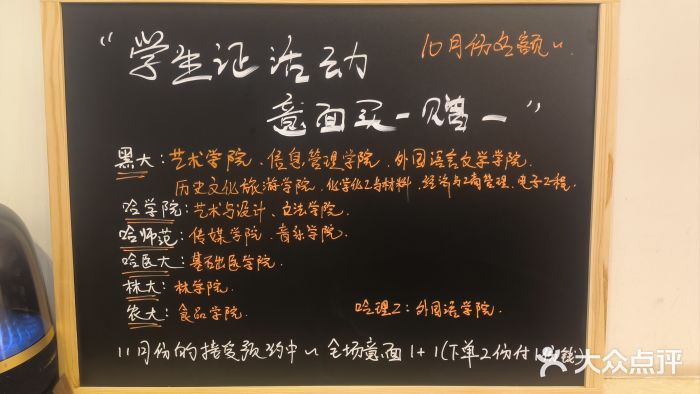 "学生证活动 10月份名额~.
意面买一赠一"
黑大:艺术学院、信息管理学院、外国语言文学学院、
历史文化旅游学院、化学化工与材料、经济与工商管理、电子工程.
哈学院:艺术与设计、文法学院.
哈师范:传媒学院、音乐学院.
哈医大:基础医学院.
林大:林学院.
农大:食品学院. 哈理工:外国语学院.
11月份的接受预约中~ 全场意面1+1(下单2份付1 钱)
大众点评